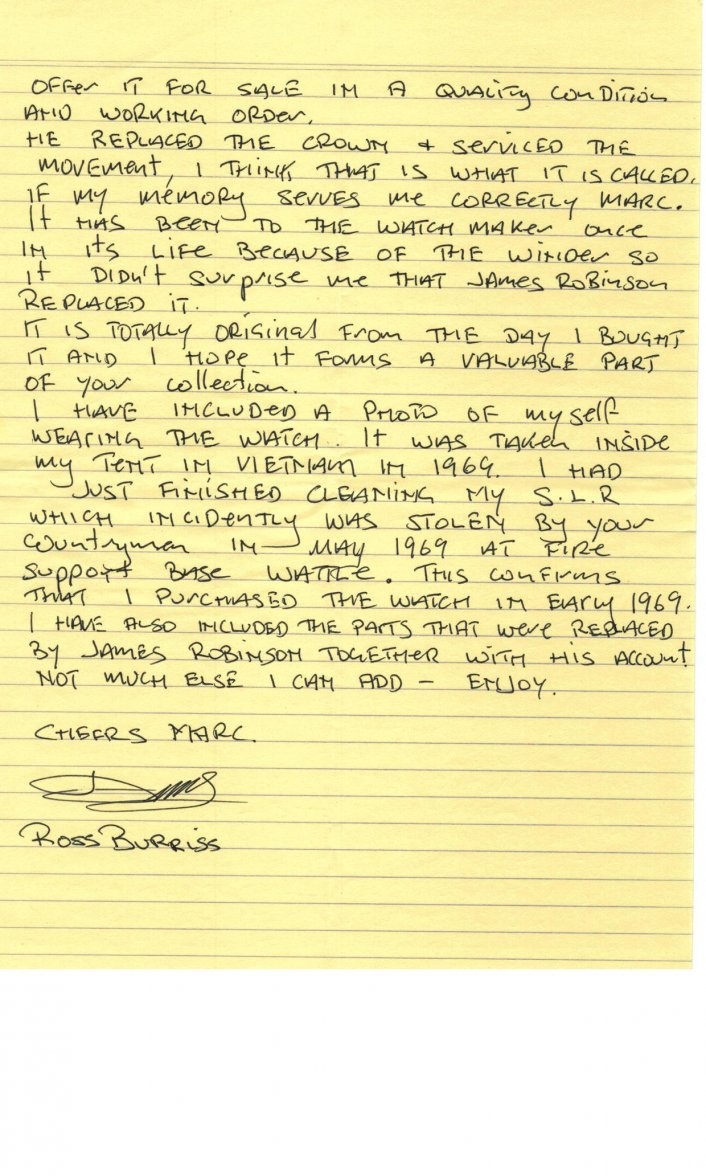 OFFER IT FOR SALE IN A QUALITY CONDITION
AND WORKING ORDER.
HE REPLACED THE CROWN + SERVICED THE
MOVEMENT, I THINK THAT IS WHAT IT IS CALLED.
IF MY MEMORY SERVES ME CORRECTLY MARC.
IT HAS BEEN TO THE WATCH MAKER ONCE
IN ITS LIFE BECAUSE OF THE WINDER SO
IT DIDN'T SURPRISE ME THAT JAMES ROBINSON
REPLACED IT.
IT IS TOTALLY ORIGINAL FROM THE DAY I BOUGHT
IT AND I HOPE IT FORMS A VALUABLE PART
OF YOUR COLLECTION.
I HAVE INCLUDED A PHOTO OF MYSELF
WEARING THE WATCH. IT WAS TAKEN INSIDE
MY TENT IN VIETNAM IN 1969. I HAD
JUST FINISHED CLEANING MY S.L.R
WHICH INCIDENTLY WAS STOLEN BY YOUR
COUNTRYMEN IN MAY 1969 AT FIRE
SUPPORT BASE WATTLE. THIS CONFIRMS
THAT I PURCHASED THE WATCH IN EARLY 1969.
I HAVE ALSO INCLUDED THE PARTS THAT WERE REPLACED
BY JAMES ROBINSON TOGETHER WITH HIS ACCOUNT
NOT MUCH ELSE I CAN ADD – ENJOY.
CHEERS MARC.
ROSS BURRISS